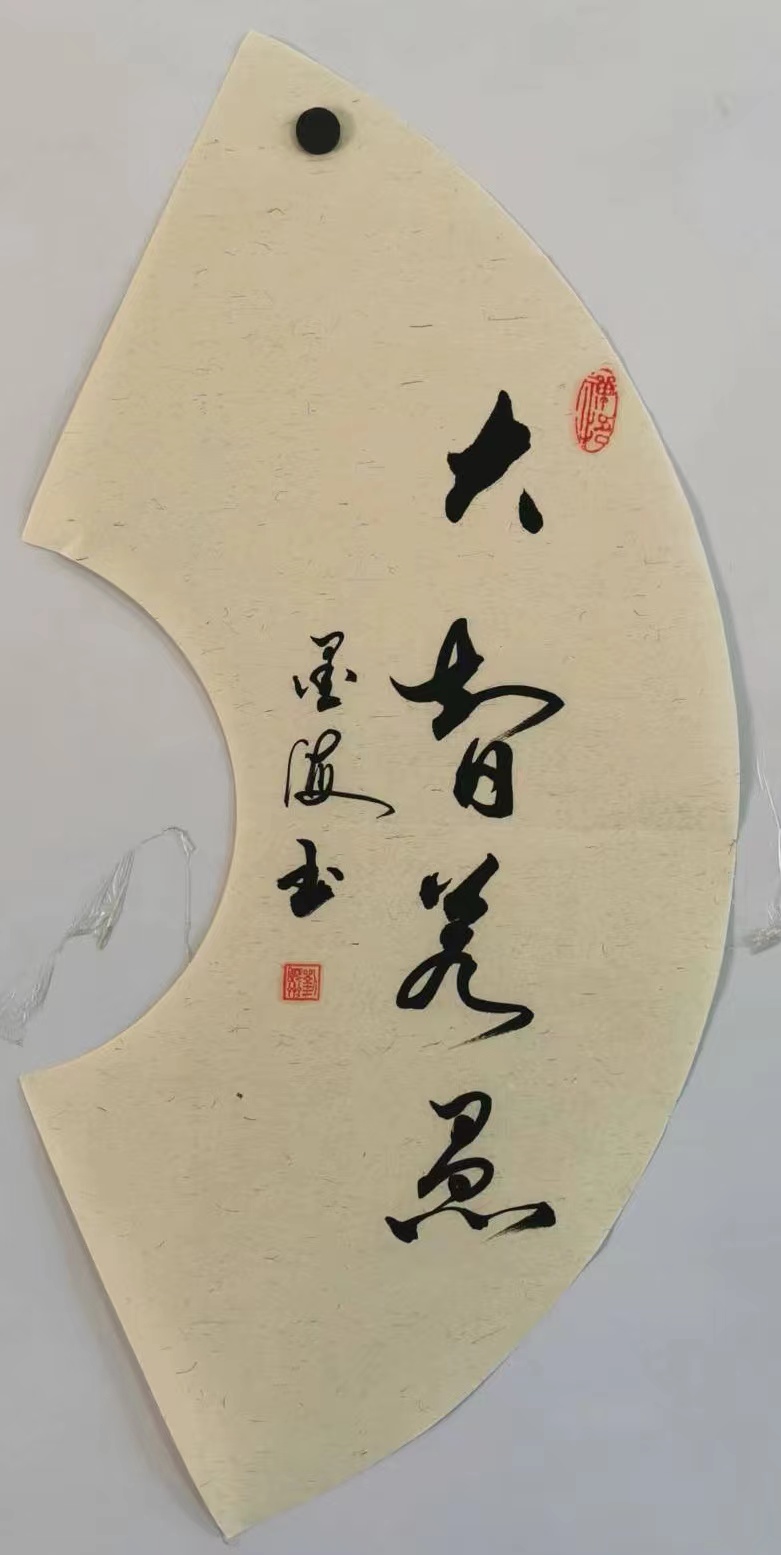 大智若愚
墨海书